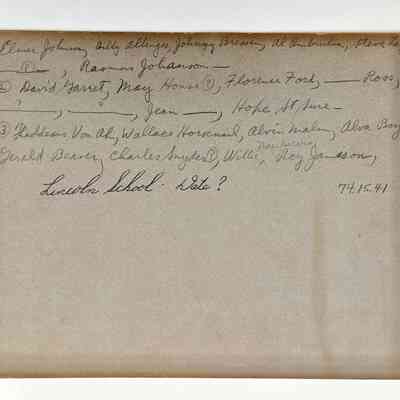 Elmer Johnson, Billy Ellinger, Johnny Bressing, Al
?, Rasmus Johanson —
② David Garret, May House ?, Florence Ford, — Ross,
?, —, Jean —, Hope St. Sure —
③ Thaddeus Von Ah, Wallace Horsenail, Alvin Malm, Alva
Gerald Beaver, Charles Snyder ?, Willie, Roy Jameson,
Lincoln School. Date?
74.15.41